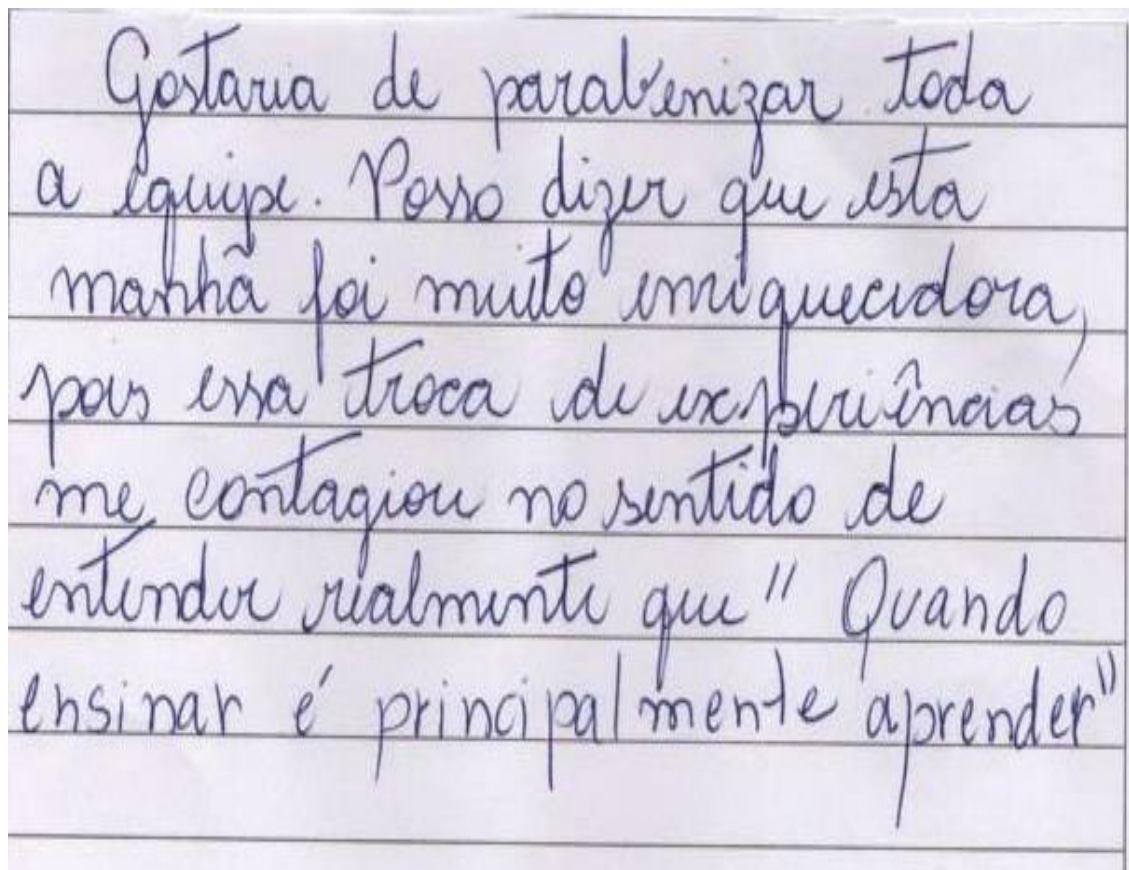 Gostaria de parabenizar toda
a equipe. Posso dizer que esta
manhã foi muito enriquecidora,
pois essa troca de experiências
me contagiou no sentido de
entender realmente que " Quando
ensinar é principalmente aprender"